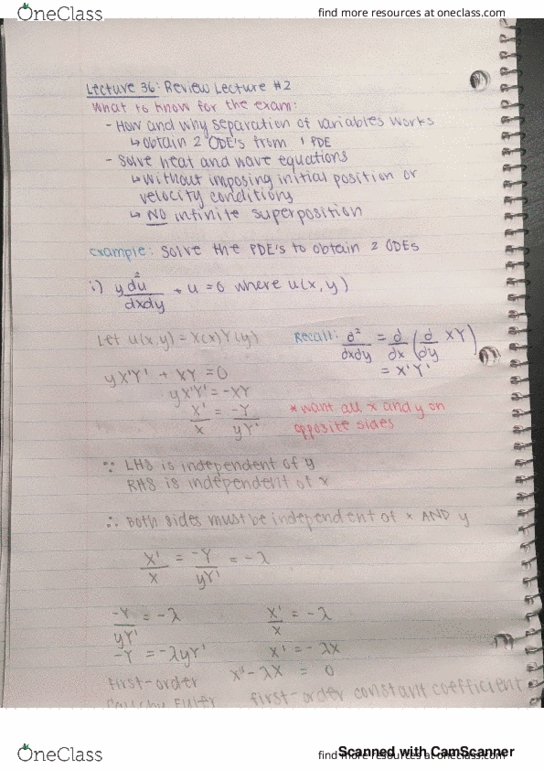 OneClass
find more resources at oneclass.com
Lecture 36: Review Lecture #2
What to know for the exam:
- How and why separation of variables works
↳ obtain 2 ODE's from 1 PDE
- Solve heat and wave equations
↳ without imposing initial position or
velocity conditions
↳ NO infinite superposition
example: Solve the PDE's to obtain 2 ODEs
i) y d²u/dxdy + u = 0 where u(x,y)
Let u(x,y) = X(x)Y(y)
Recall: d²/dxdy = d/dx (d/dy XY)
= X'Y'
yX'Y' + XY = 0
yX'Y' = -XY
X'/X = -Y/yY'
*want all x and y on
opposite sides
∵ LHS is independent of y
RHS is independent of x
∴ Both sides must be independent of x AND y
X'/X = -Y/yY' = -λ
-Y/yY' = -λ
X'/X = -λ
-Y = -λyY'
X' = -λX
X'-λX = 0
first-order
first-order constant coefficient
Cauchy Euler
OneClass
Scanned with CamScanner
find more resources at oneclass.com